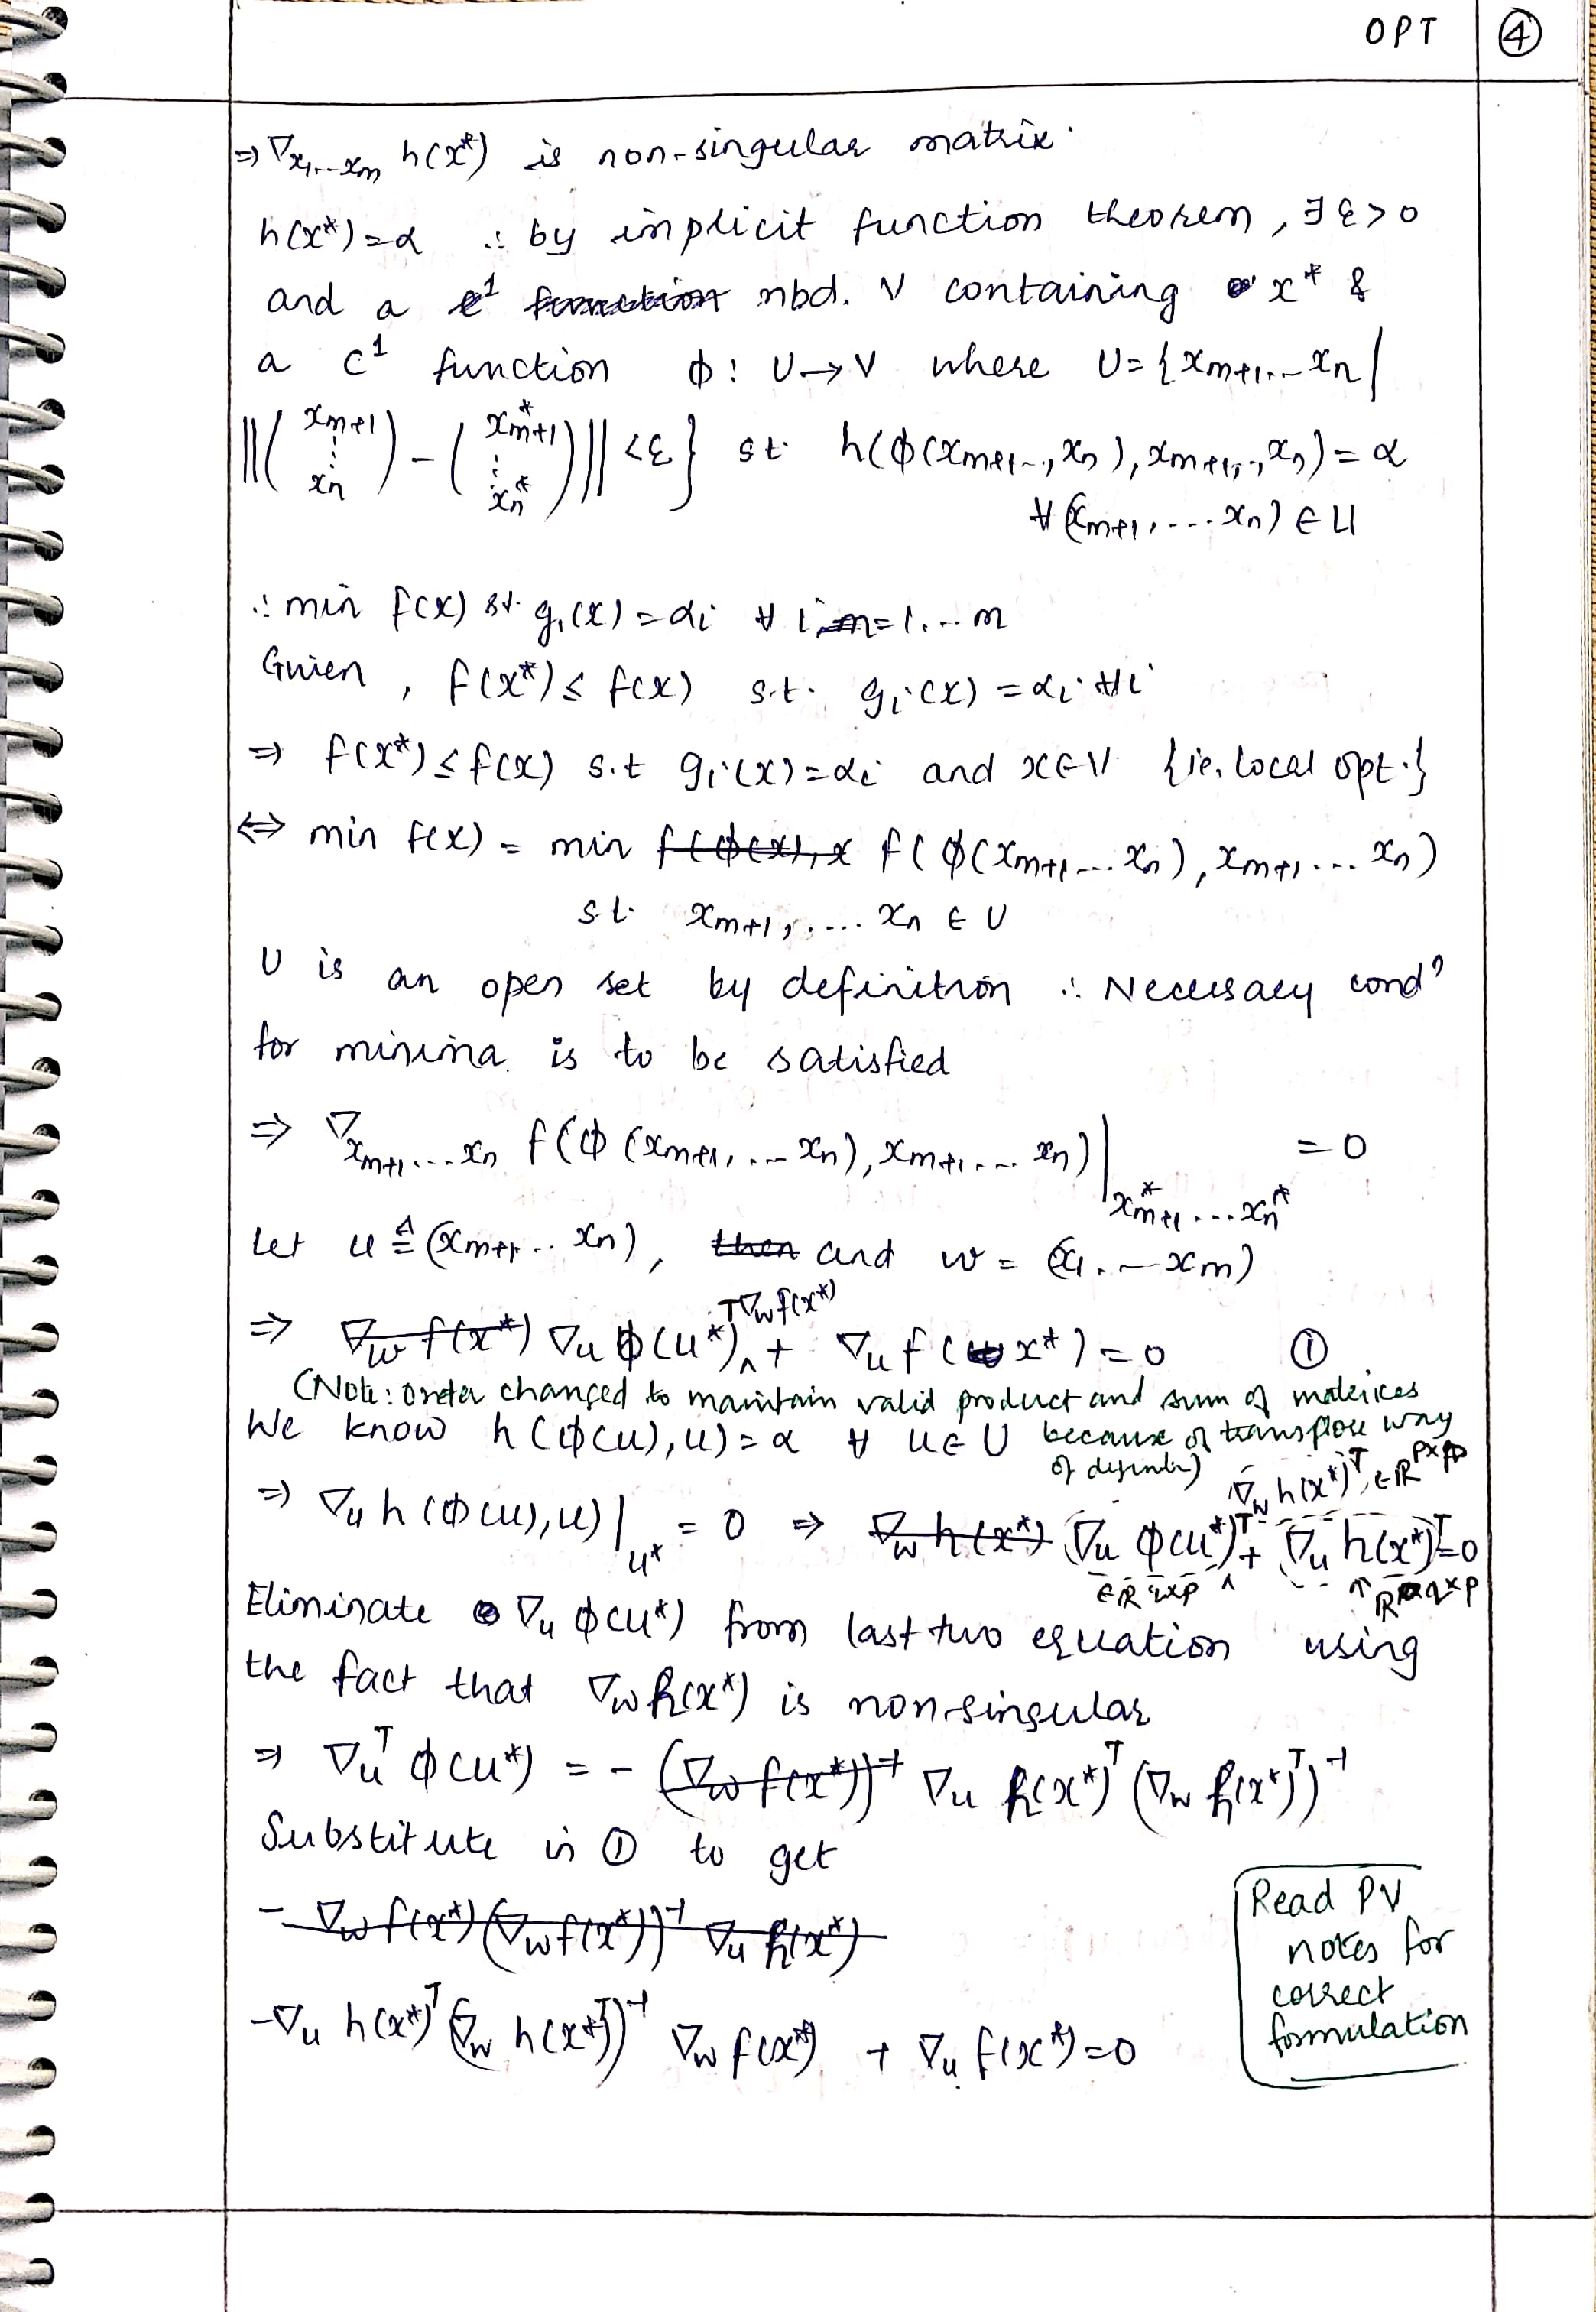 OPT ④
⇒ ∇x₁...xₘ h(x*) is non-singular matrix.
h(x*)=α ∴ by implicit function theorem, ∃ ε>0
and a c¹ function nbd. V containing x* &
a c¹ function ϕ: U→V where U={xₘ₊₁...xₙ |
||(xₘ₊₁ ⋮ xₙ) - (x*ₘ₊₁ ⋮ xₙ*)|| <ε} st. h(ϕ(xₘ₊₁..,xₙ), xₘ₊₁,..,xₙ) = α
∀ (xₘ₊₁, .... xₙ) ∈ U
∴ min f(x) st. gᵢ(x) = αᵢ ∀ i=1,..m
Given, f(x*) ≤ f(x) s.t. gᵢ(x) = αᵢ ∀i
⇒ f(x*) ≤ f(x) s.t gᵢ(x) = αᵢ and x∈V {ie, local opt.}
⇔ min f(x) = min f(ϕ(x), x f(ϕ(xₘ₊₁...xₙ), xₘ₊₁ ... xₙ)
s.t. xₘ₊₁, .... xₙ ∈ U
U is an open set by definition ∴ Necessary condⁿ
for minima is to be satisfied
⇒ ∇xₘ₊₁...xₙ f(ϕ(xₘ₊₁, ... xₙ), xₘ₊₁ ... xₙ)|x*ₘ₊₁ ... xₙ* = 0
Let u ≜ (xₘ₊₁... xₙ), then and w = (x₁...xₘ)
⇒ ∇w f(x*) ∇u ϕ(u*)ᵀ∇w f(x*) + ∇u f(x*) = 0 ①
(Note: order changed to maintain valid product and sum of matrices
because of transpose way
of defintn)
We know h(ϕ(u), u) = α ∀ u∈U
⇒ ∇u h(ϕ(u), u)|u* = 0 ⇒ ∇w h(x*) ∇u ϕ(u*)ᵀ ∇w h(x*)ᵀ + ∇u h(x*)ᵀ = 0
∈ℝ^q×p ∈ℝ^p×p ℝ^q×p
Eliminate ∇u ϕ(u*) from last two equation using
the fact that ∇w h(x*) is non-singular
⇒ ∇uᵀ ϕ(u*) = - (∇w f(x*))⁻¹ ∇u h(x*)ᵀ (∇w h(x*)ᵀ)⁻¹
Substitute in ① to get
- ∇w f(x*) (∇w f(x*))⁻¹ ∇u h(x*)
-∇u h(x*)ᵀ (∇w h(x*)ᵀ)⁻¹ ∇w f(x*) + ∇u f(x*) = 0
Read PV
notes for
correct
formulation